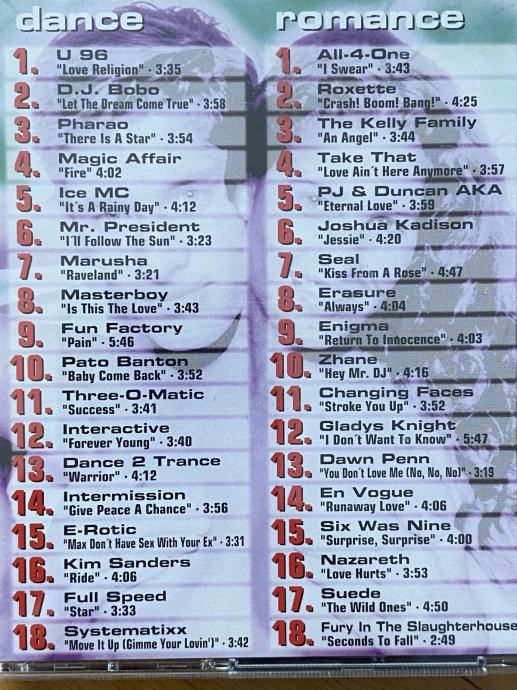 dance
1. U 96
"Love Religion" · 3:35
2. D.J. Bobo
"Let The Dream Come True" · 3:58
3. Pharao
"There Is A Star" · 3:54
4. Magic Affair
"Fire" 4:02
5. Ice MC
"It´s A Rainy Day" · 4:12
6. Mr. President
"I´ll Follow The Sun" · 3:23
7. Marusha
"Raveland" · 3:21
8. Masterboy
"Is This The Love" · 3:43
9. Fun Factory
"Pain" · 5:46
10. Pato Banton
"Baby Come Back" · 3:52
11. Three-O-Matic
"Success" · 3:41
12. Interactive
"Forever Young" · 3:40
13. Dance 2 Trance
"Warrior" · 4:12
14. Intermission
"Give Peace A Chance" · 3:56
15. E-Rotic
"Max Don´t Have Sex With Your Ex" · 3:31
16. Kim Sanders
"Ride" · 4:06
17. Full Speed
"Star" · 3:33
18. Systematixx
"Move It Up (Gimme Your Lovin´)" · 3:42
romance
1. All-4-One
"I Swear" · 3:43
2. Roxette
"Crash! Boom! Bang!" · 4:25
3. The Kelly Family
"An Angel" · 3:44
4. Take That
"Love Ain´t Here Anymore" · 3:57
5. PJ & Duncan AKA
"Eternal Love" · 3:59
6. Joshua Kadison
"Jessie" · 4:20
7. Seal
"Kiss From A Rose" · 4:47
8. Erasure
"Always" · 4:04
9. Enigma
"Return To Innocence" · 4:03
10. Zhane
"Hey Mr. DJ" · 4:16
11. Changing Faces
"Stroke You Up" · 3:52
12. Gladys Knight
"I Don´t Want To Know" · 5:47
13. Dawn Penn
"You Don´t Love Me (No, No, No)" · 3:19
14. En Vogue
"Runaway Love" · 4:06
15. Six Was Nine
"Surprise, Surprise" · 4:00
16. Nazareth
"Love Hurts" · 3:53
17. Suede
"The Wild Ones" · 4:50
18. Fury In The Slaughterhouse
"Seconds To Fall" · 2:49